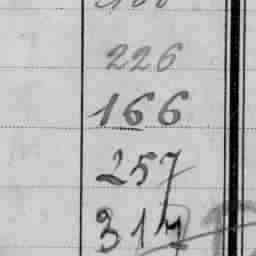 226
166
257
317